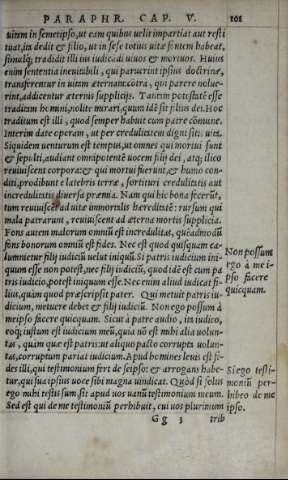 PARAPHR. CAP. V. 101
uitam in semetipso, ut eam quibus uelit impertiat aut resti
tuat, ita dedit & filio, ut in sese totius uitæ fontem habeat,
simulq; tradidit illi ius iudicādi uiuos & mortuos. Huius
enim sententia ineuitabili, qui paruerint ipsius doctrinæ,
transferentur in uitam æternam: cōtra, qui parere nolue-
rint, addicentur æternis supplicijs. Tantam potestatē esse
traditam homini, nolite mirari, quum idē sit filius dei. Hoc
traditum est illi, quod semper habuit cum patre cōmune.
Interim date operam, ut per credulitatem digni sitis uita.
Siquidem uenturum est tempus, ut omnes qui mortui sunt
& sepulti, audiant omnipotentē uocem filij dei, atq; ilico
reuiuiscent corpora: & qui mortui fuerunt, & humo con-
diti, prodibunt e latebris terræ, sortituri credulitatis aut
incredulitatis diuersa præmia. Nam qui hic bona fecerūt,
tum reuiuiscēt ad uitæ immortalis hereditatē: rursum qui
mala patrarunt, reuiuiscent ad æterna mortis supplicia.
Fons autem malorum omniū est incredulitas, quēadmodū
fons bonorum omniū est fides. Nec est quod quisquam ca-
lumnietur filij iudiciū uelut iniquū. Si patris iudicium ini-
quum esse non potest, nec filij iudiciū, quod idē est cum pa
tris iudicio, potest iniquum esse. Nec enim aliud iudicat fi-
lius, quàm quod præscripsit pater. Qui metuit patris iu-
dicium, metuere debet & filij iudiciū. Non ego possum à
meipso facere quicquam. Sicut à patre audio, ita iudico,
eoq; iustum est iudicium meū, quia nō est mihi alia uolun-
tas, quàm quæ est patris: ut aliquo pacto corrupta uolun-
tas, corruptum pariat iudicium. Apud homines leuis est fi-
des illi, qui testimonium fert de seipso: & arrogans habe-
tur, qui sua ipsius uoce sibi magna uindicat. Quòd si solus
ego mihi testis sum, sit apud uos uanū testimonium meum.
Sed est qui de me testimoniū perhibuit, cui uos plurimum
Non possum
ego à me i-
pso facere
quicquam.
Si ego testi-
moniū per-
hibeo de me
ipso.
Gg 3 trib